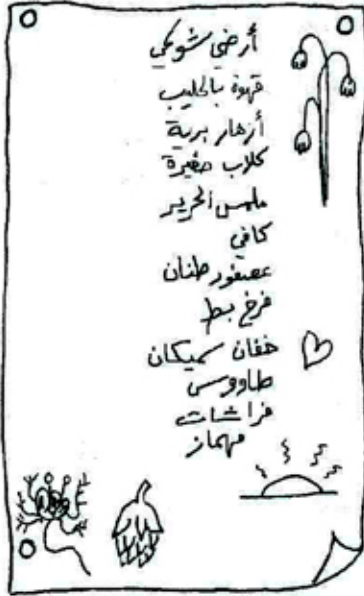 أرضي شوكي
قهوة بالحليب
أزهار برية
كلاب صغيرة
ملمس الحرير
كافي
عصفور طنان
فرخ بط
خفان سميكان
طاووس
فراشات
مهماز